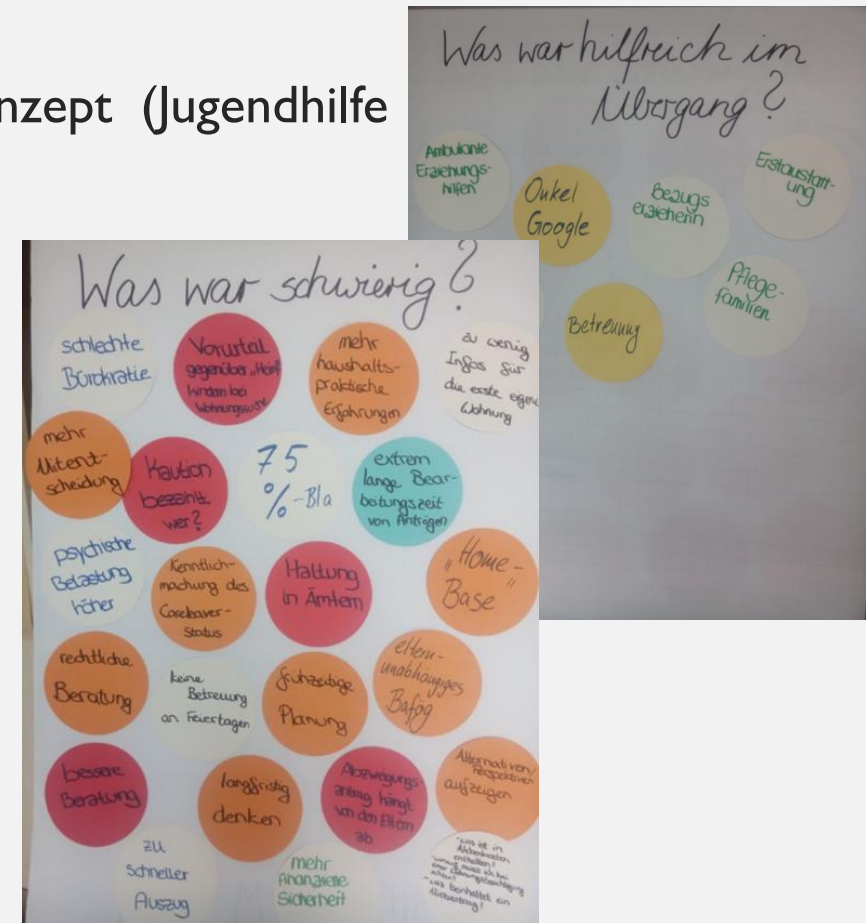 nzept (Jugendhilfe
Was war hilfreich im
Übergang?
Ambulante
Erziehungs-
hilfen
Onkel
Google
Bezugs
erzieherin
Erstaustatt-
ung
Betreuung
Pflege-
familien
Was war schwierig?
schlechte
Bürokratie
Vorurteil
gegenüber „Heim
kindern bei
mehr
haushalts-
praktische
Erfahrungen
zu wenig
Infos für
die erste eigene
Wohnung
mehr
Mitent-
scheidung
Kaution
bezahlt
wer?
75
%-Bla
extrem
lange Bear-
beitungszeit
von Anträgen
psychische
Belastung
höher
Kenntlich-
machung des
Careleaver-
Status
Haltung
in Ämtern
„Home-
Base"
rechtliche
Beratung
keine
Betreuung
an Feiertagen
frühzeitige
Planung
eltern-
unabhängiges
Bafög
bessere
Beratung
langfristig
denken
Abzweigungs-
antrag hängt
von den Eltern
ab
Alternativen/
Perspektiven
aufzeigen
zu
schneller
Auszug
mehr
finanzielle
Sicherheit